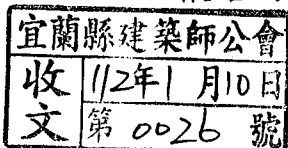 宜蘭縣建築師公會
收文
112年1月10日
第0026號